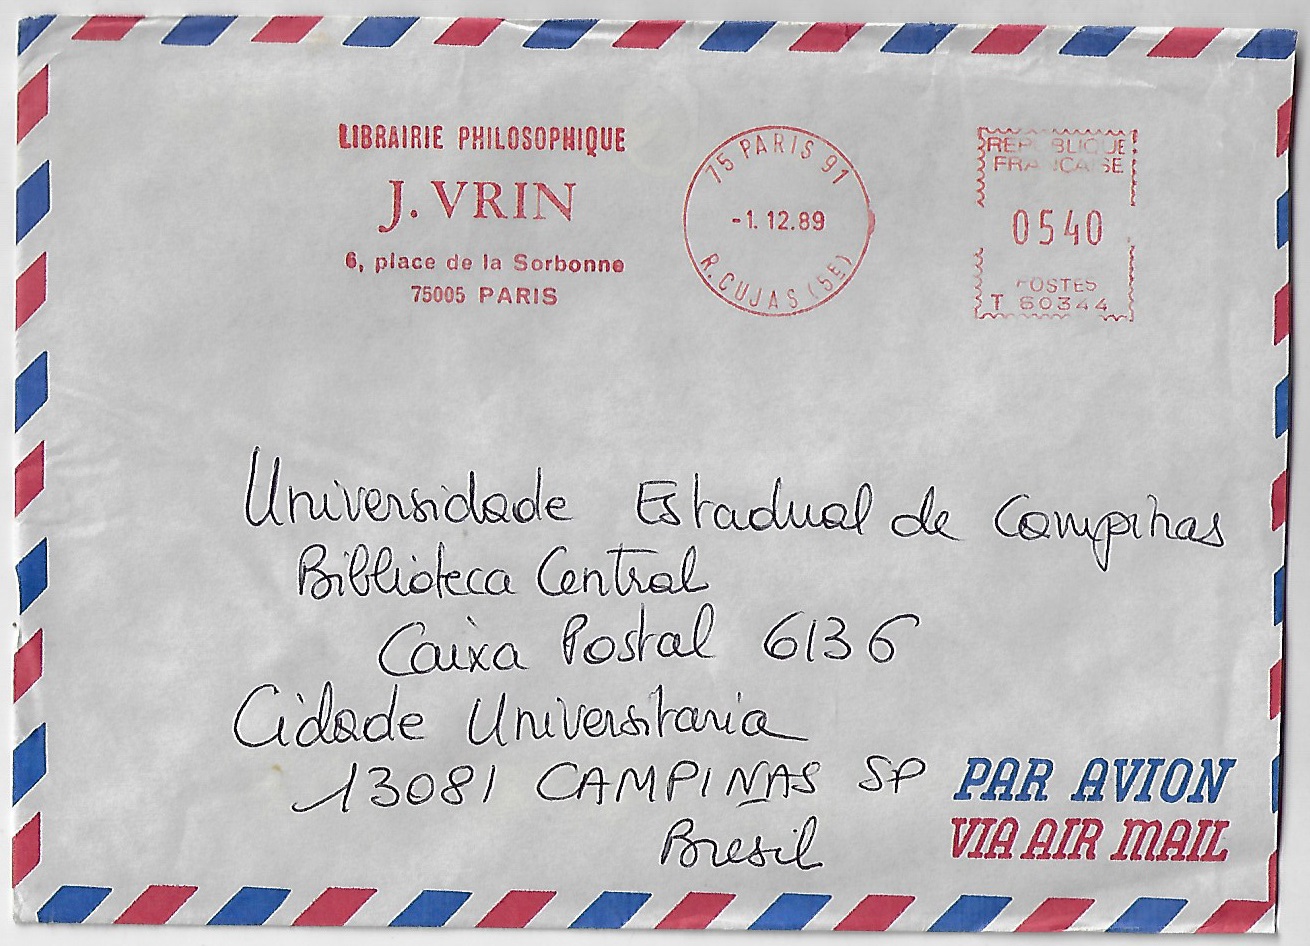 LIBRAIRIE PHILOSOPHIQUE
J. VRIN
6, place de la Sorbonne
75005 PARIS
75 PARIS 91
-1. 12.89
R. CUJAS (5E)
REPUBLIQUE
FRANCAISE
0540
POSTES
T 60344
Universidade Estadual de Campinas
Biblioteca Central
Caixa Postal 6136
Cidade Universitaria
13081 CAMPINAS SP
Bresil
PAR AVION
VIA AIR MAIL